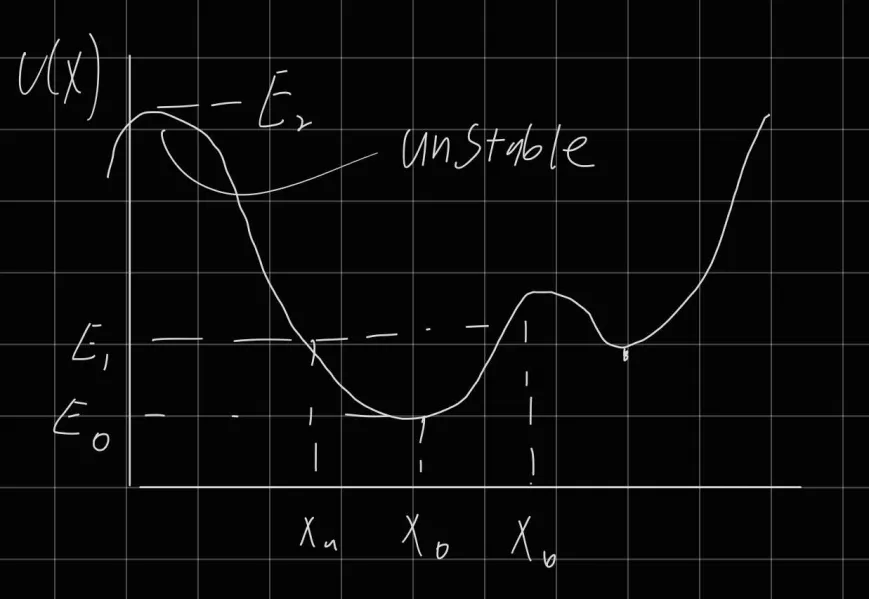 U(x)
E₂
unstable
E₁
E₀
xₐ x₀ x_b